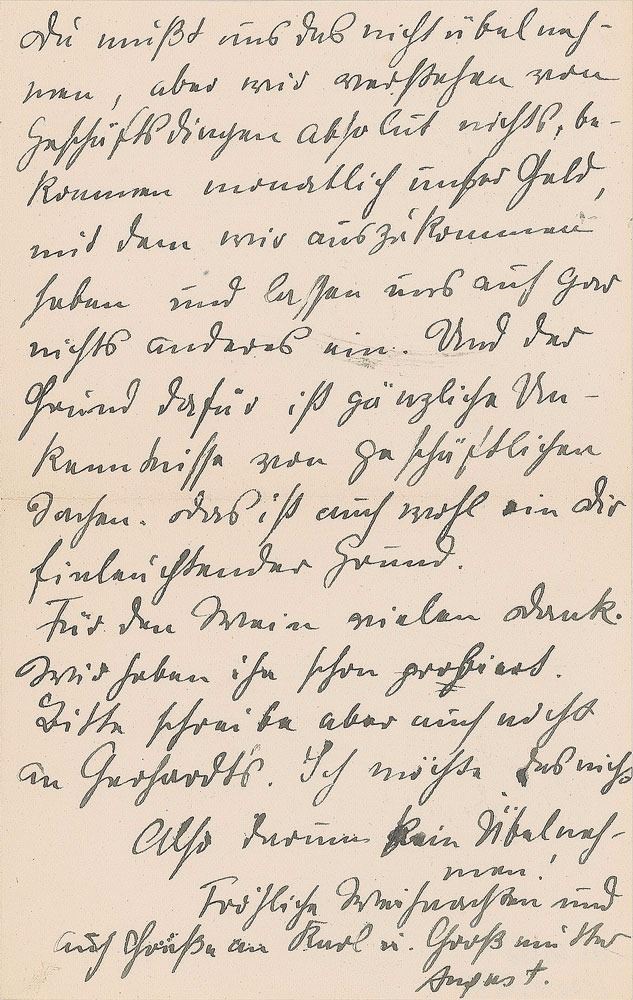 Du mußt uns das nicht übelneh-
men, aber wir verstehen von
Geschäftsdingen absolut nichts, be-
kommen monatlich unser Geld,
mit dem wir auszukommen
haben und lassen uns auf gar
nichts anderes ein. Und der
Grund dafür ist gänzliche Un-
kenntnisse von geschäftlichen
Sachen. Das ist auch wohl ein Dir
einleuchtender Grund.
Für den Wein vielen Dank.
Wir haben ihn schon probiert.
Bitte schreibe aber auch nicht
an Gerhardts. Ich möchte das nicht
Also darum kein Übelneh-
men!
Fröhliche Weihnachten und
auch Grüße an Karl u. Großmutter
August.